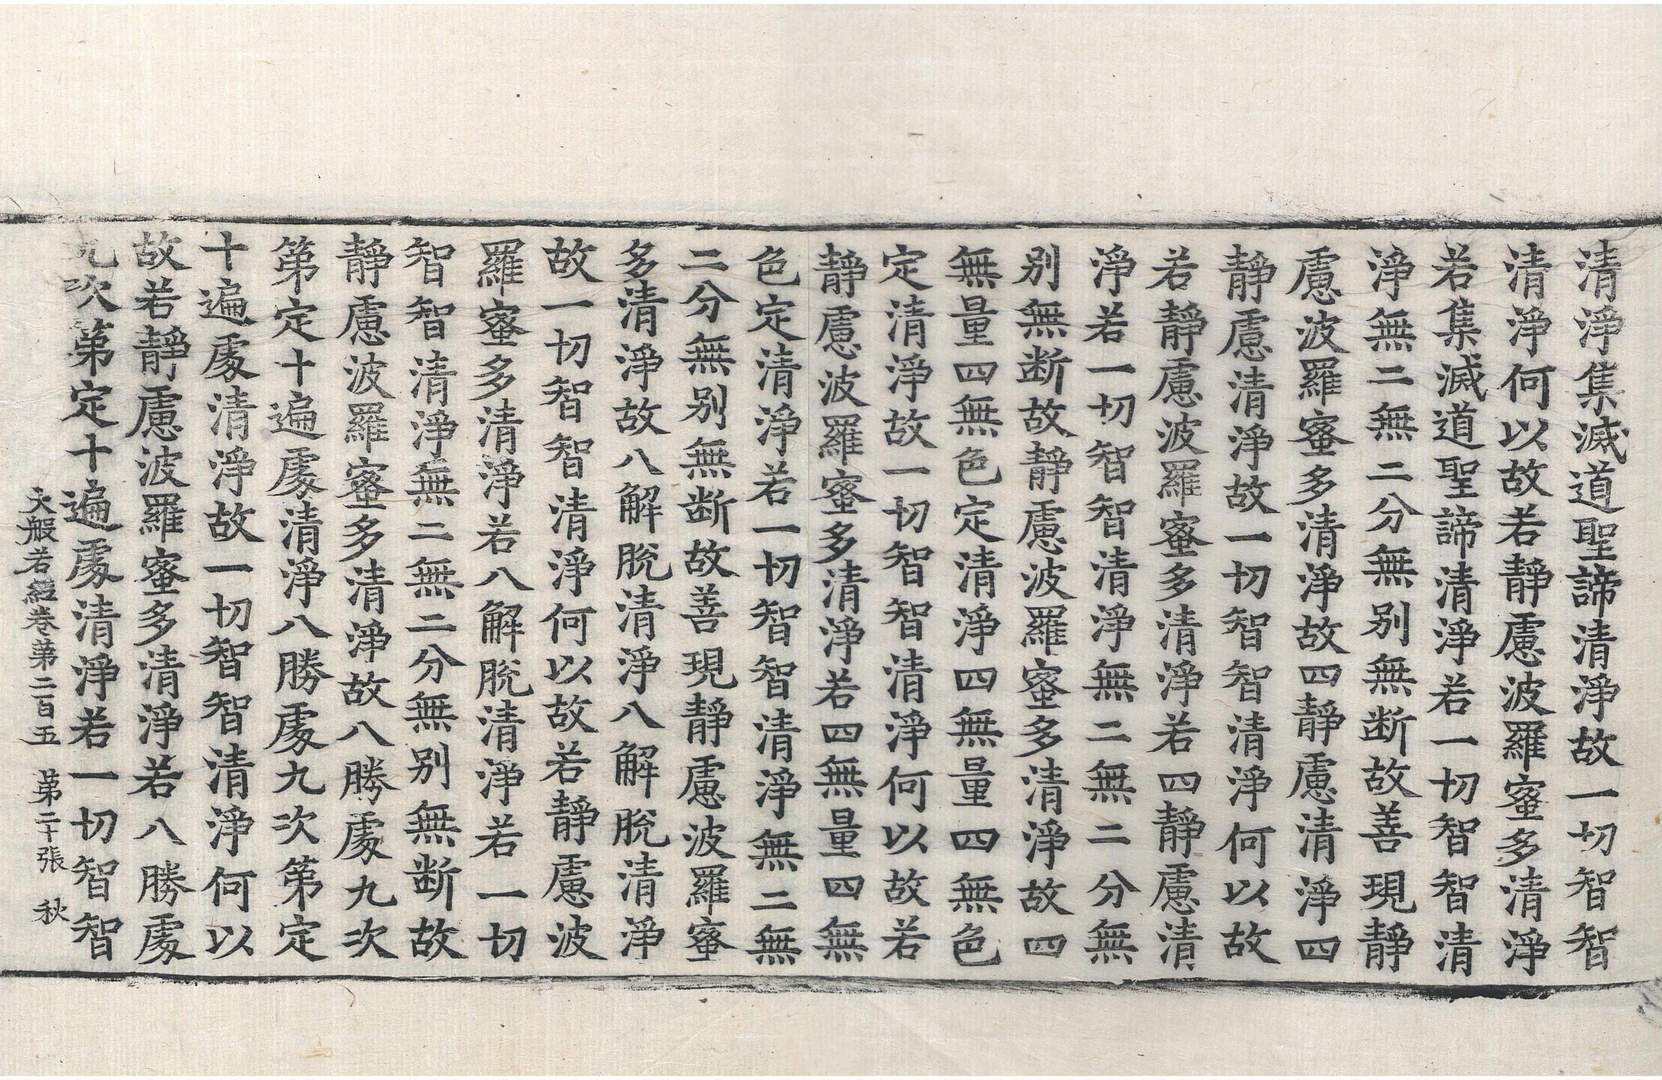 清淨集滅道聖諦清淨故一切智智
清淨何以故若靜慮波羅蜜多清淨
若集滅道聖諦清淨若一切智智清
淨無二無二分無別無断故善現靜
慮波羅蜜多清淨故四靜慮清淨四
靜慮清淨故一切智智清淨何以故
若靜慮波羅蜜多清淨若四靜慮清
淨若一切智智清淨無二無二分無
別無断故靜慮波羅蜜多清淨故四
無量四無色定清淨四無量四無色
定清淨故一切智智清淨何以故若
靜慮波羅蜜多清淨若四無量四無
色定清淨若一切智智清淨無二無
二分無別無断故善現靜慮波羅蜜
多清淨故八解脫清淨八解脫清淨
故一切智智清淨何以故若靜慮波
羅蜜多清淨若八解脫清淨若一切
智智清淨無二無二分無別無断故
靜慮波羅蜜多清淨故八勝處九次
第定十遍處清淨八勝處九次第定
十遍處清淨故一切智智清淨何以
故若靜慮波羅蜜多清淨若八勝處
九次第定十遍處清淨若一切智智
大般若經卷第二百五 第二十張 秋